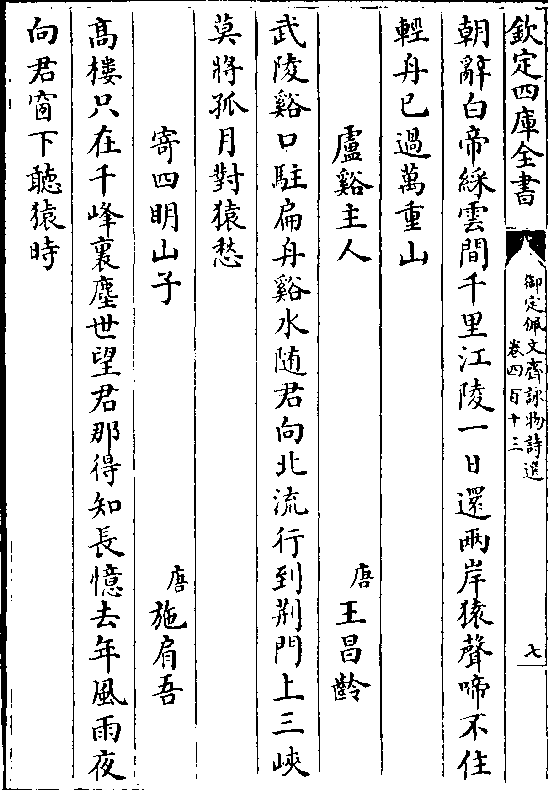 欽定四庫全書
御定佩文齋詠物詩選
卷四百十三
七
朝辭白帝綵雲間千里江陵一日還兩岸猿聲啼不住
輕舟已過萬重山
盧谿主人
唐
王昌齡
武陵谿口駐扁舟谿水随君向北流行到荆門上三峽
莫將孤月對猿愁
寄四明山子
唐
施肩吾
髙樓只在千峰裏塵世望君那得知長憶去年風雨夜
向君窗下聽猿時